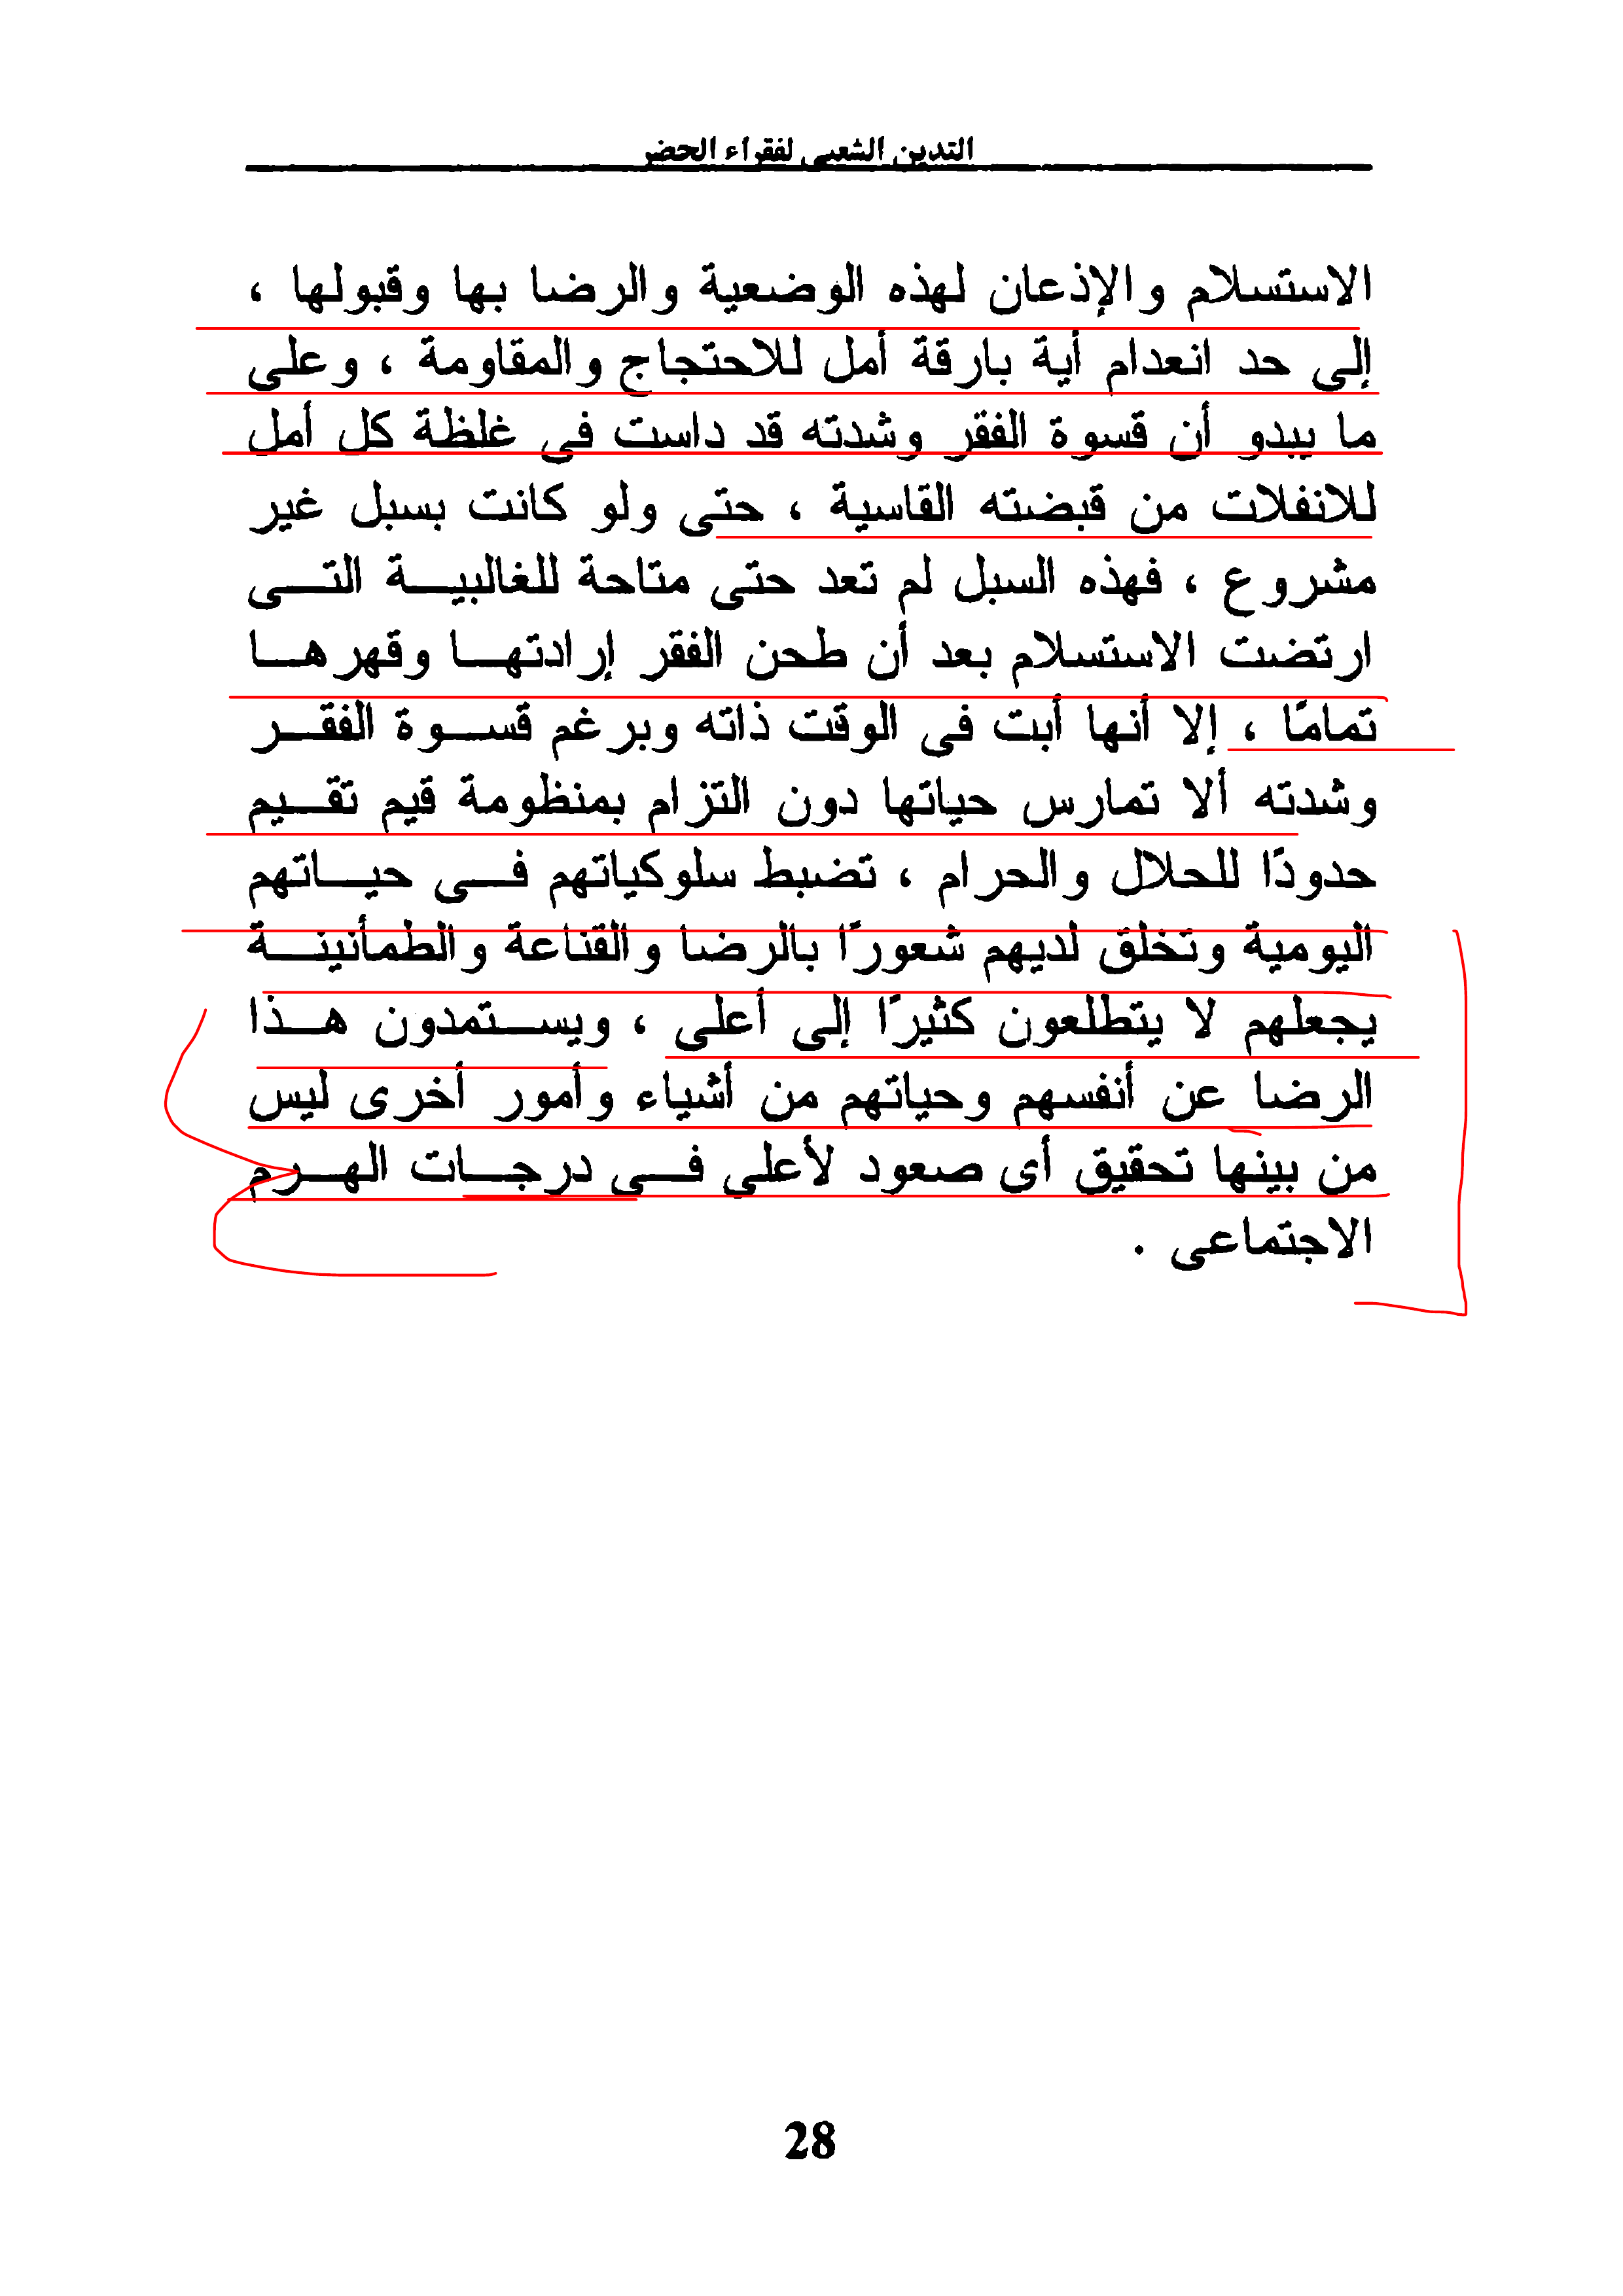 التدين الشعبى لفقراء الحضر
الاستسلام والإذعان لهذه الوضعية والرضا بها وقبولها ،
إلى حد انعدام أية بارقة أمل للاحتجاج والمقاومة ، وعلى
ما يبدو أن قسوة الفقر وشدته قد داست فى غلظة كل أمل
للانفلات من قبضته القاسية ، حتى ولو كانت بسبل غير
مشروع ، فهذه السبل لم تعد حتى متاحة للغالبيـــة التـــى
ارتضت الاستسلام بعد أن طحن الفقر إرادتهـــا وقهرهـــا
تمامًا ، إلا أنها أبت فى الوقت ذاته وبرغم قســـوة الفقـــر
وشدته ألا تمارس حياتها دون التزام بمنظومة قيم تقـــيم
حدودًا للحلال والحرام ، تضبط سلوكياتهم فـــى حيـــاتهم
اليومية وتخلق لديهم شعورًا بالرضا والقناعة والطمأنينـــة
يجعلهم لا يتطلعون كثيرًا إلى أعلى ، ويســـتمدون هـــذا
الرضا عن أنفسهم وحياتهم من أشياء وأمور أخرى ليس
من بينها تحقيق أى صعود لأعلى فـــى درجـــات الهـــرم
الاجتماعى .
28